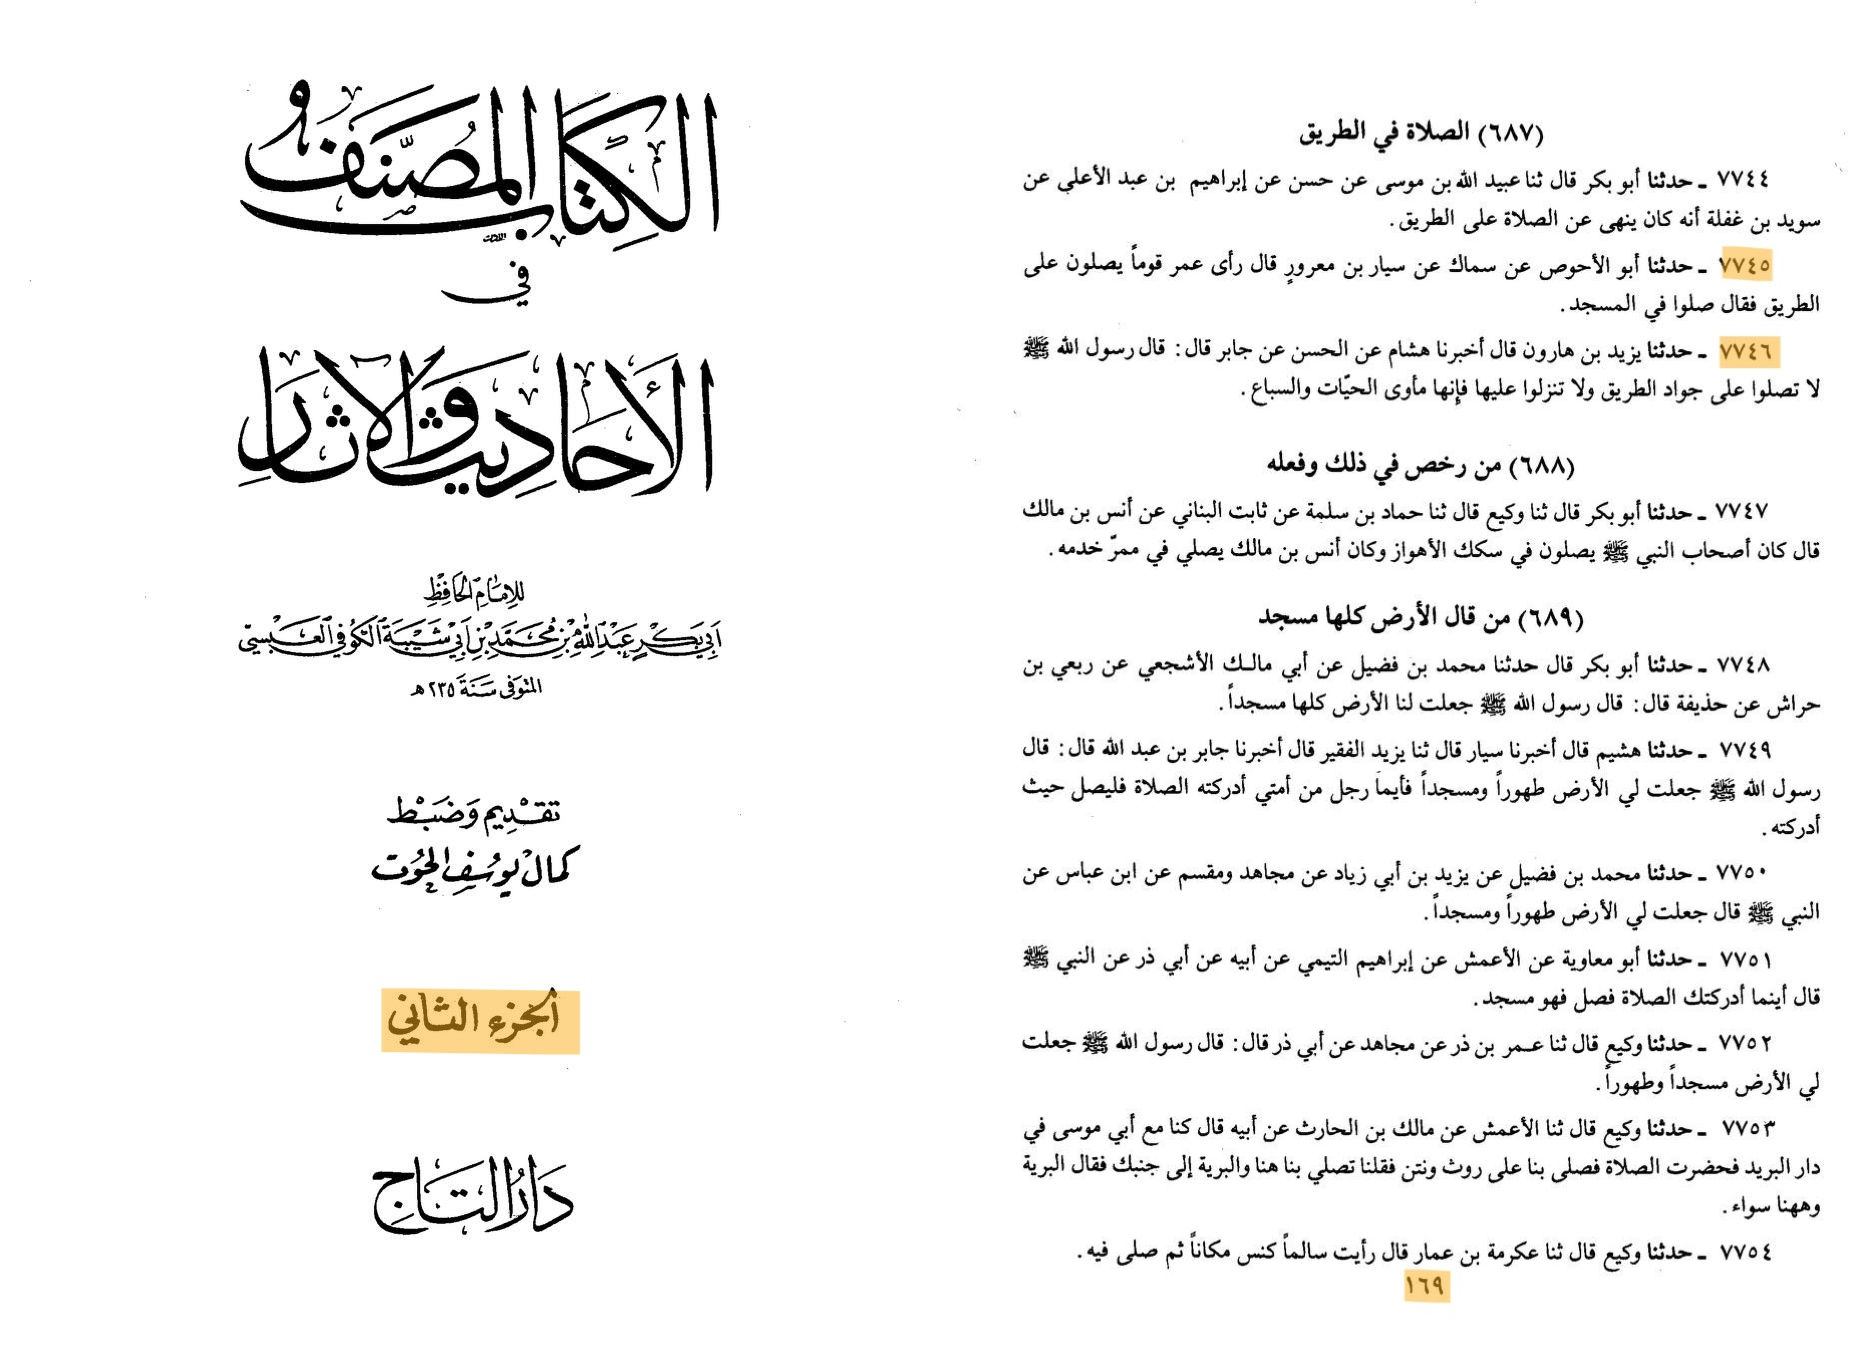 الكتاب المصنف
في
الأحاديث والآثار
للإمام الحافظ
أبي بكر عبد الله بن محمد بن أبي شيبة الكوفي العبسي
المتوفى سنة ٢٣٥ هـ
تقديم وضبط
كمال يوسف الحوت
الجزء الثاني
دار التاج
(٦٨٧) الصلاة في الطريق
٧٧٤٤ ـ حدثنا أبو بكر قال ثنا عبيد الله بن موسى عن حسن عن إبراهيم بن عبد الأعلي عن
سويد بن غفلة أنه كان ينهى عن الصلاة على الطريق.
٧٧٤٥ ـ حدثنا أبو الأحوص عن سماك عن سيار بن معرورٍ قال رأى عمر قوماً يصلون على
الطريق فقال صلوا في المسجد.
٧٧٤٦ ـ حدثنا يزيد بن هارون قال أخبرنا هشام عن الحسن عن جابر قال: قال رسول الله ﷺ
لا تصلوا على جواد الطريق ولا تنزلوا عليها فإنها مأوى الحيّات والسباع.
(٦٨٨) من رخص في ذلك وفعله
٧٧٤٧ ـ حدثنا أبو بكر قال ثنا وكيع قال ثنا حماد بن سلمة عن ثابت البناني عن أنس بن مالك
قال كان أصحاب النبي ﷺ يصلون في سكك الأهواز وكان أنس بن مالك يصلي في ممرّ خدمه.
(٦٨٩) من قال الأرض كلها مسجد
٧٧٤٨ ـ حدثنا أبو بكر قال حدثنا محمد بن فضيل عن أبي مالك الأشجعي عن ربعي بن
حراش عن حذيفة قال: قال رسول الله ﷺ جعلت لنا الأرض كلها مسجداً.
٧٧٤٩ ـ حدثنا هشيم قال أخبرنا سيار قال ثنا يزيد الفقير قال أخبرنا جابر بن عبد الله قال: قال
رسول الله ﷺ جعلت لي الأرض طهوراً ومسجداً فأيما رجل من أمتي أدركته الصلاة فليصل حيث
أدركته.
٧٧٥٠ ـ حدثنا محمد بن فضيل عن يزيد بن أبي زياد عن مجاهد ومقسم عن ابن عباس عن
النبي ﷺ قال جعلت لي الأرض طهوراً ومسجداً.
٧٧٥١ ـ حدثنا أبو معاوية عن الأعمش عن إبراهيم التيمي عن أبيه عن أبي ذر عن النبي ﷺ
قال أينما أدركتك الصلاة فصل فهو مسجد.
٧٧٥٢ ـ حدثنا وكيع قال ثنا عمر بن ذر عن مجاهد عن أبي ذر قال: قال رسول الله ﷺ جعلت
لي الأرض مسجداً وطهوراً.
٧٧٥٣ ـ حدثنا وكيع قال ثنا الأعمش عن مالك بن الحارث عن أبيه قال كنا مع أبي موسى في
دار البريد فحضرت الصلاة فصلى بنا على روث ونتن فقلنا تصلي بنا هنا والبرية إلى جنبك فقال البرية
وههنا سواء.
٧٧٥٤ ـ حدثنا وكيع قال ثنا عكرمة بن عمار قال رأيت سالماً كنس مكاناً ثم صلى فيه.
١٦٩